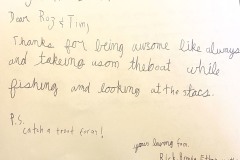 Dear Roz & Tim,
Thanks for being awsome like always
and takeing us om the boat while
fishing and looking at the stars.
P.S.
catch a trout for me!
your loving fan,
Rick